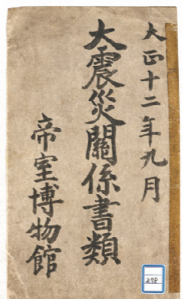 大正十二年九月
大震災關係書類
帝室博物館